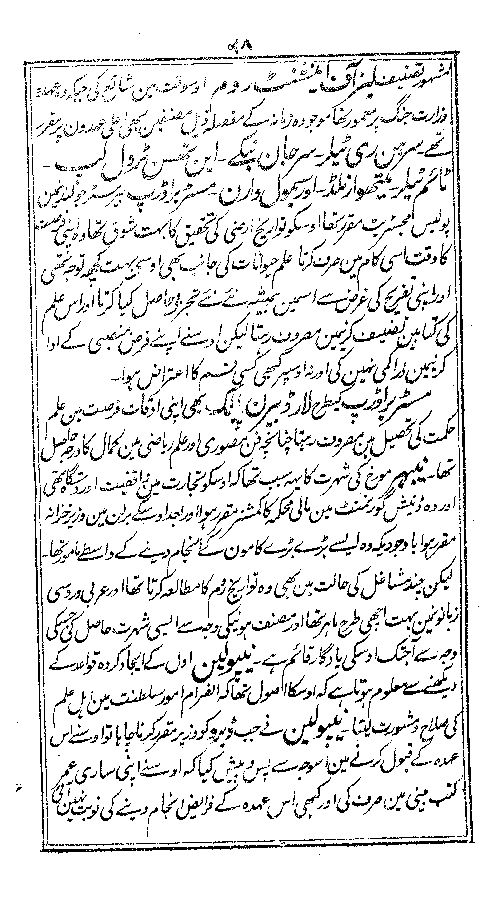 ۴۸
مشہور تصنیف لیز آف انشنٹ روم اوسوقت مین شایع کی جبکہ وہ عہدہ
وزارت جنگ پر معمور تھا موجودہ زمانہ کے مفصلہ ذیل مصنفین بھی اعلی عہدون پر مقرر
تھے سر ہن ری ٹیلر ۔ سر جان کے ۔ این تھنس ٹرولوپ ۔
ٹائم ٹیلر ۔ میتھو ارنلڈ ۔ اور سیمول وارن ۔ مسٹر براڈرپ بیرسٹر جو لنڈن مین
پولیس مجسٹریٹ مقرر تھا اوسکو تواریخ ارضی کی تحقیق کا بہت شوق تھا وہ اپنی فرصت
کا وقت اسی کام مین صرف کرتا علم حیوانات کی جانب بھی اوسی بہت کچھ توجہ تھی
اور اپنی تفریح کی غرض سے اسمین ہمیشہ نئے نئے تجربہ حاصل کیا کرتا اور اس علم
کی کتابین تصنیف کرنیمین مصروف رہتا لیکن اوسنے اپنے فرض منصبی کے ادا
کرنیمین ذرا کمی نہین کی اور نہ اوسپر کبھی کسی قسم کا اعتراض ہوا ۔
مسٹر براڈرپ کیطرح لارڈ بیرن پولک بھی اپنی اوقات فرصت مین علم
حکمت کی تحصیل مین مصروف رہتا چنانچہ فن مصوری اور علم ریاضی مین کمال کا درجہ حاصل
تھا ۔ نیبہر مورخ کی شہرت کا یہ سبب تھا کہ اوسکو تجارت مین واقفیت اور دستگاہ تھی
اور وہ ڈینش گورنمنٹ مین مالی محکمہ کا کمشنر مقرر ہوا اور بعد اوسکے برلن مین وزیر خزانہ
مقرر ہوا باوجودیکہ وہ ایسے بڑے بڑے کامون کے انجام دینے کے واسطے مامور تھا ۔
لیکن چند مشاغل کی حالت مین بھی وہ تواریخ روم کا مطالعہ کرتا تھا اور عربی و روسی
زبانونمین بہت اچھی طرح ماہر تھا اور مصنف ہونیکی وجہ سے ایسی شہرت حاصل کی جسکی
وجہ سے آجتک اوسکی یادگار قائم ہے ۔ نیپولین اول کے ایجاد کردہ قواعد کے
دیکھنے سے معلوم ہوتا ہے کہ اوسکا اصول تھا کہ انصرام امور سلطنت مین اہل علم
کی صلاح و مشورت لیتا ۔ نیپولین نے جب ڈیرو کو وزیر مقرر کرنا چاہا تو اوسنے اس
عہدہ کے قبول کرنے مین اسوجہ سے پس و پیش کیا کہ اوسنے اپنی ساری عمر
کتب بینی مین صرف کی اور کبھی اس عہدہ کے فرائض انجام دینے کی نوبت نہین آئی